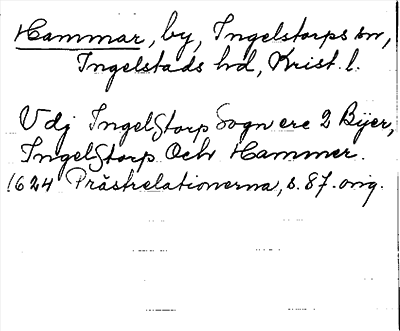 Hammar, by, Ingelstorps sn,
Ingelstads hd, Krist. l.
Vdj Ingelstorp Sogn ere 2 Byer,
Ingelstorp Och Hammer.
1624 Prästrelationerna, s. 87. orig.